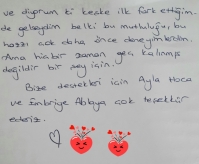 ve diyorum ki keşke ilk fark ettiğim-
de gebeydim belki bu mutluluğu, bu
hazzı çok daha önce deneyimlerdim.
Ama hiçbir zaman geç kalınmış
değildir bir şey için.
Bize destekleri için Ayla Hoca
ve Emriye Ablaya çok teşekkür
ederiz.